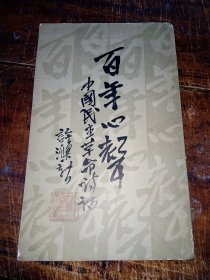 百年心声
中國民主革命诗话
許滌新